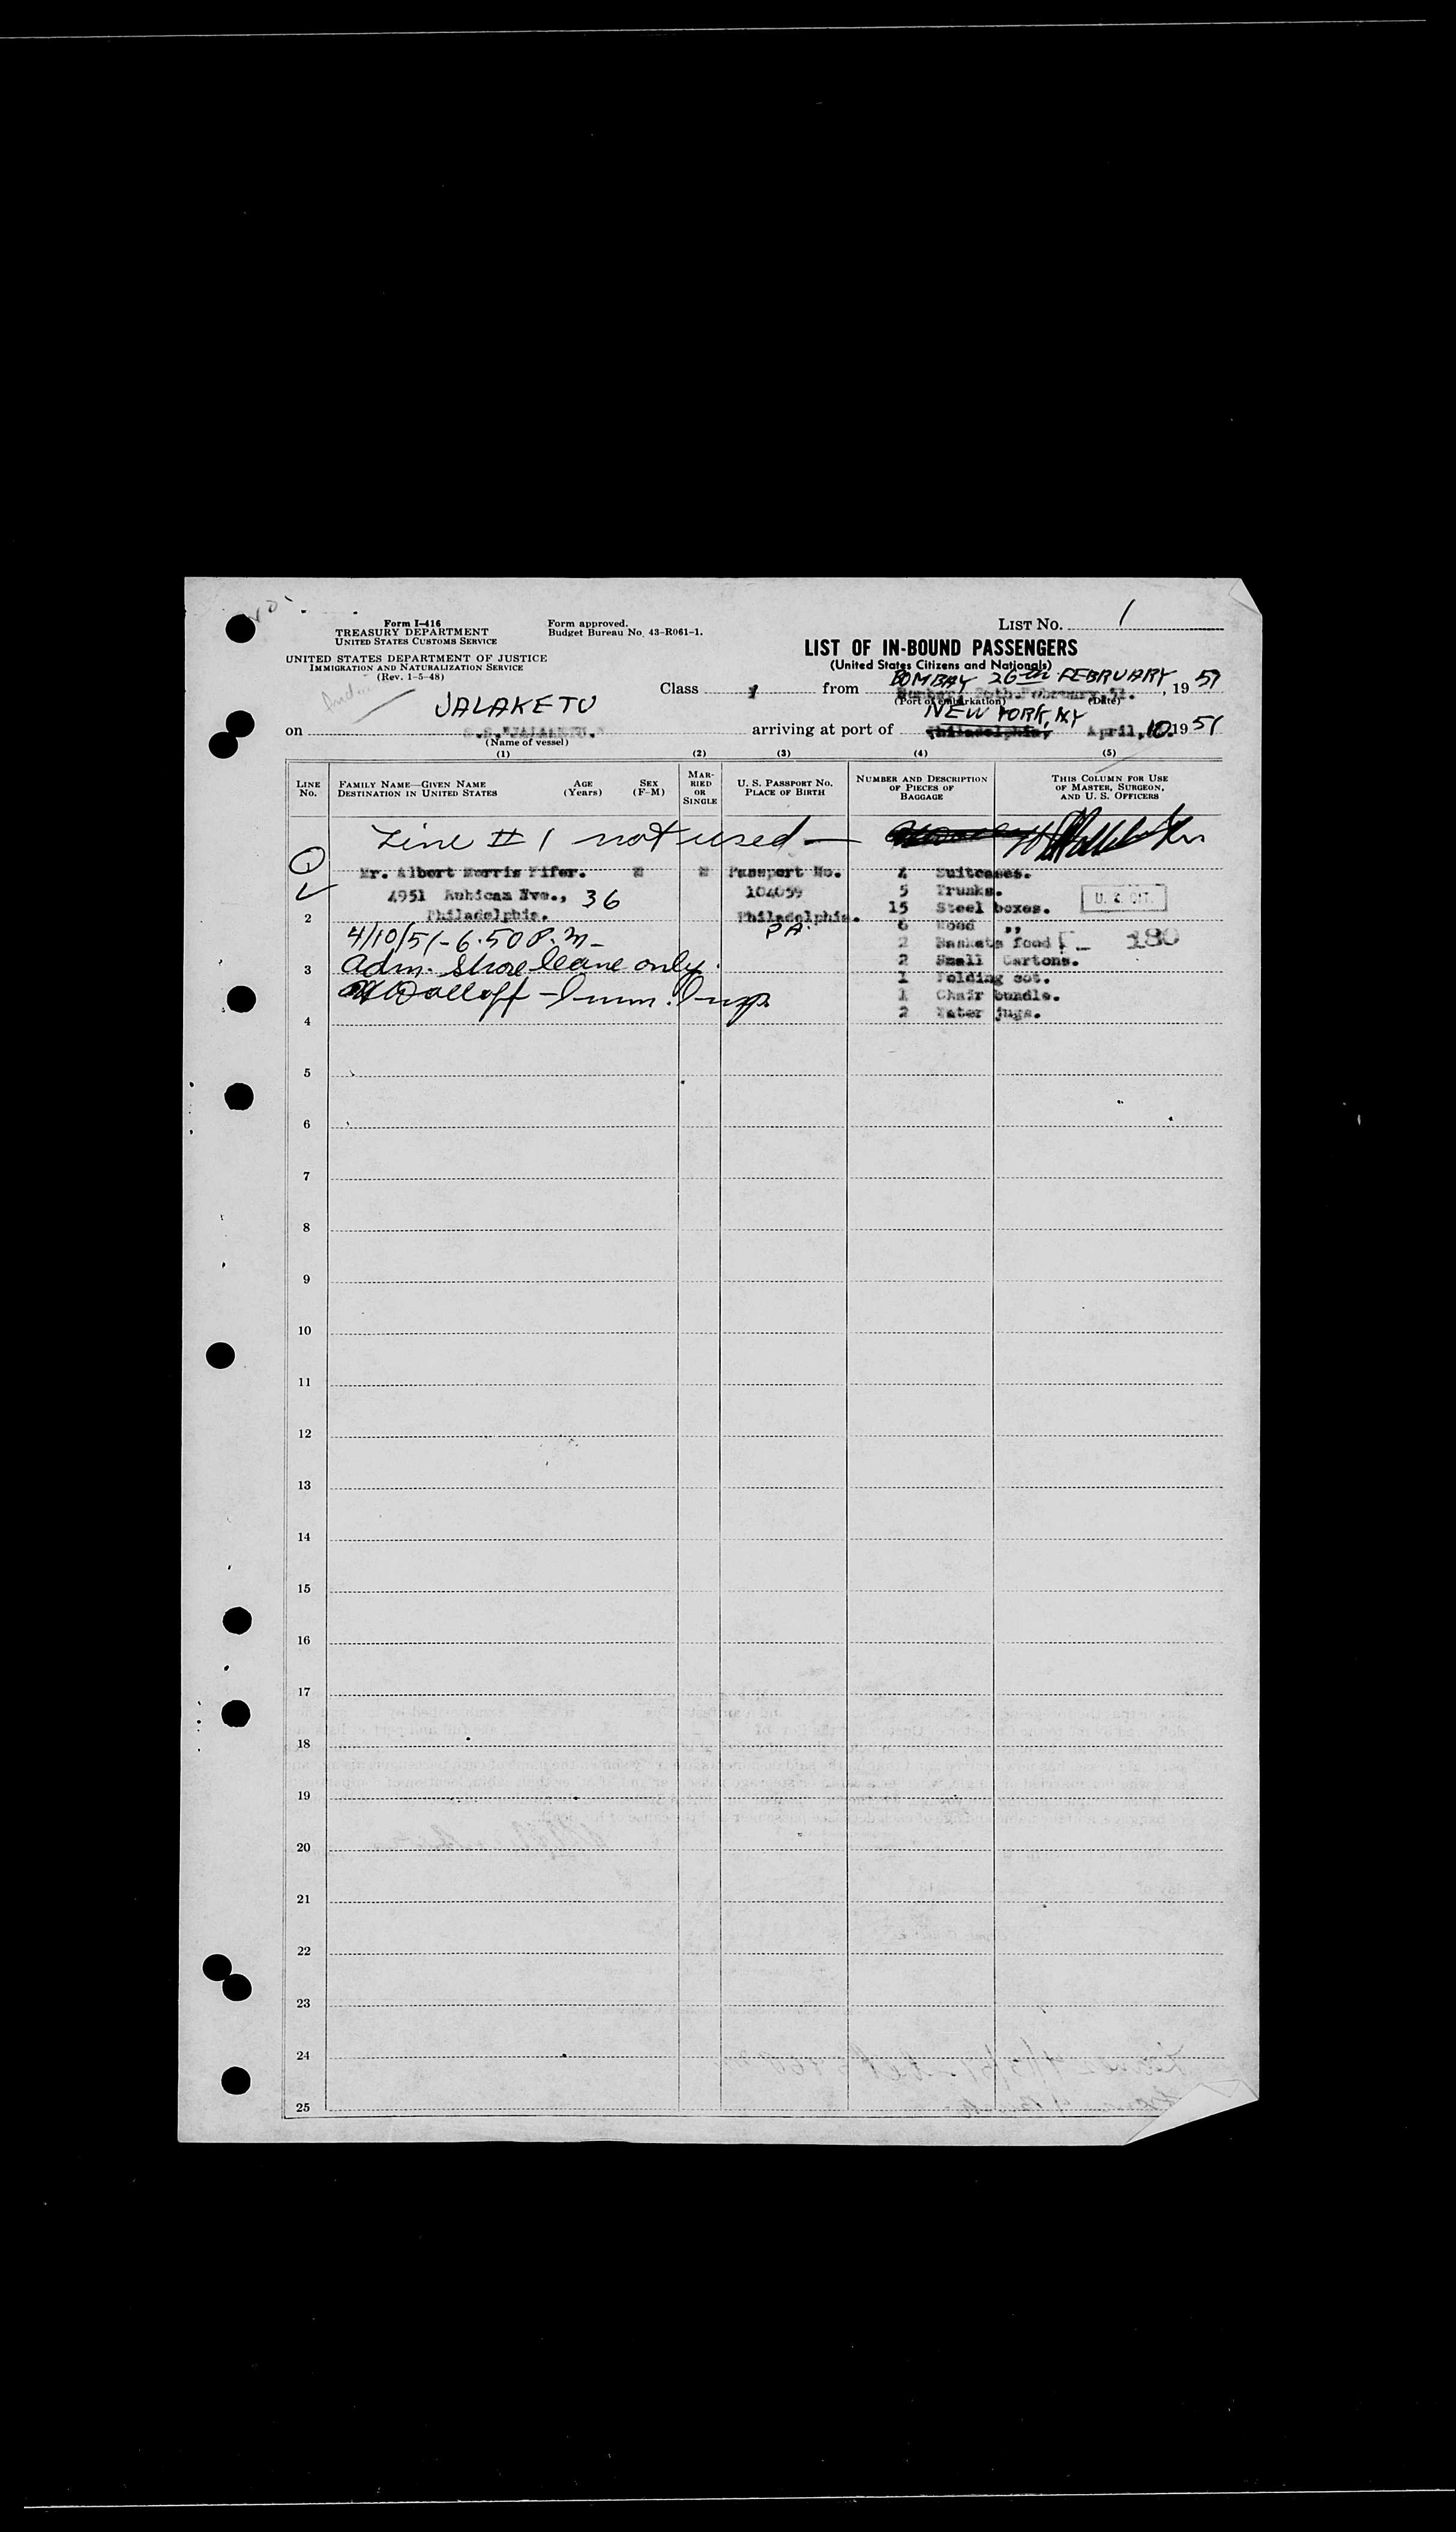 Form I-416
TREASURY DEPARTMENT
UNITED STATES CUSTOMS SERVICE
Form approved.
Budget Bureau No. 43-R061-1.
LIST NO. 1
UNITED STATES DEPARTMENT OF JUSTICE
IMMIGRATION AND NATURALIZATION SERVICE
(Rev. 1-5-48)
LIST OF IN-BOUND PASSENGERS
(United States Citizens and Nationals)
BOMBAY 26th FEBRUARY
Class from Bombay, 26th February, 51., 19 51
(Port of embarkation) (Date)
JALAKETU
NEW YORK, NY
on S.S. "JALAKETU." arriving at port of Philadelphia, April, 10. 19 51
(Name of vessel)
(1) (2) (3) (4) (5)
LINE NO.
FAMILY NAME—GIVEN NAME
DESTINATION IN UNITED STATES
AGE (Years)
SEX (F-M)
MARRIED OR SINGLE
U. S. PASSPORT NO.
PLACE OF BIRTH
NUMBER AND DESCRIPTION OF PIECES OF BAGGAGE
THIS COLUMN FOR USE OF MASTER, SURGEON, AND U. S. OFFICERS
Line # 1 not used —
1
Mr. Albert Morris Pifer. M M Passport No. 4 Suitcases.
4951 Rubican Ave., 36 104059 5 Trunks.
15 Steel boxes. U. S. CIT.
2 Philadelphia. Philadelphia.
PA. 6 Wood ,,
4/10/51 - 6.50 P.M - 2 Baskets food 180
3 adm. Shore leave only. 2 Small Cartons.
1 Folding cot.
Imm. Insp. 1 Chair bundle.
4 2 Water jugs.
5
6
7
8
9
10
11
12
13
14
15
16
17
18
19
20
21
22
23
24
25